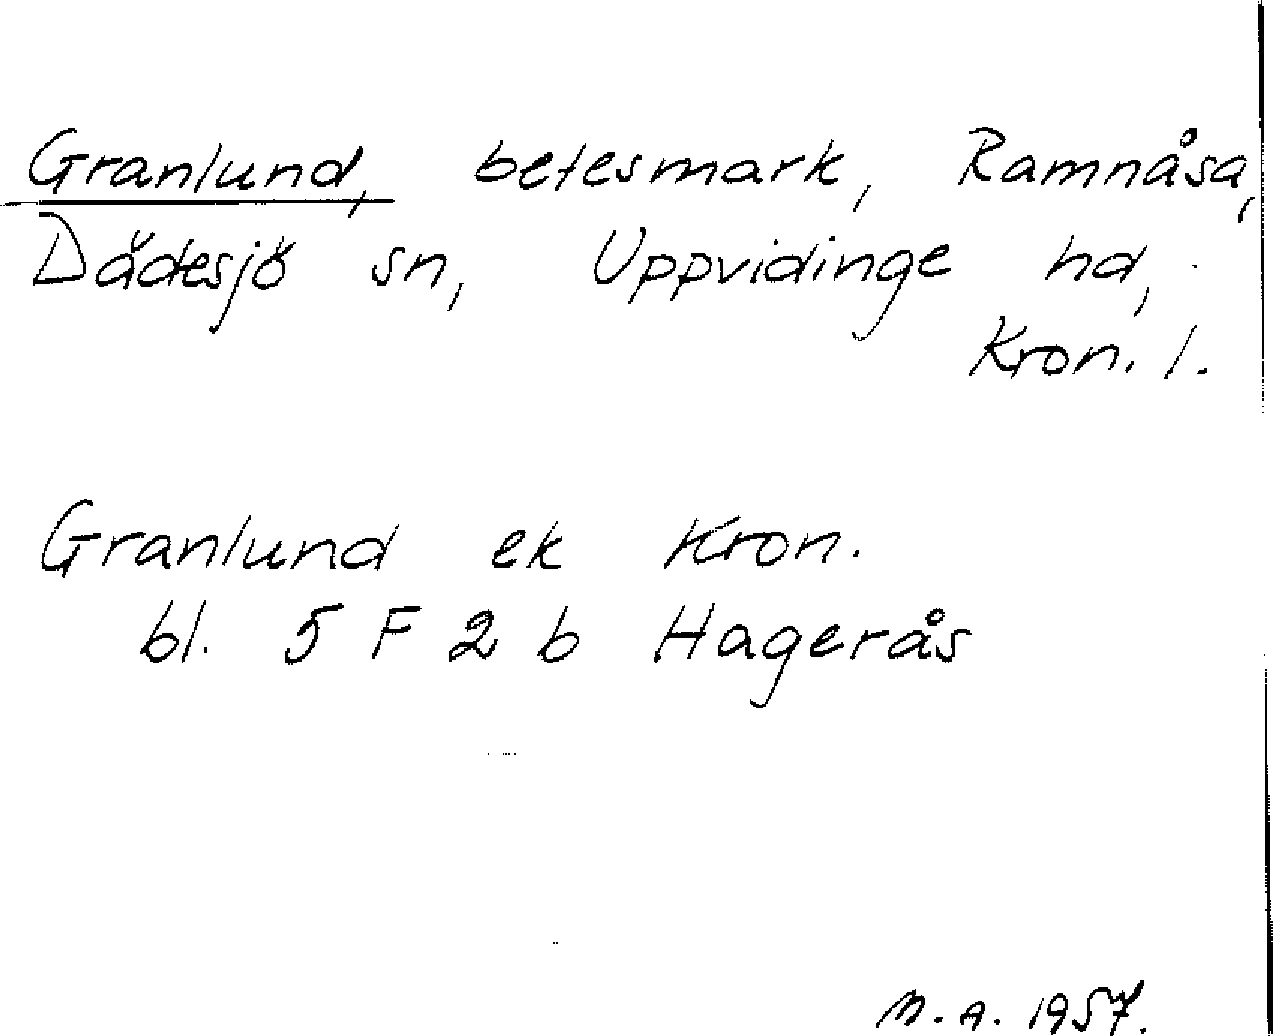 Granlund, betesmark, Ramnåsa,
Dädesjö sn, Uppvidinge hd,
Kron. l.
Granlund ek Kron.
bl. 5 F 2 b Hagerås
M.A. 1957.